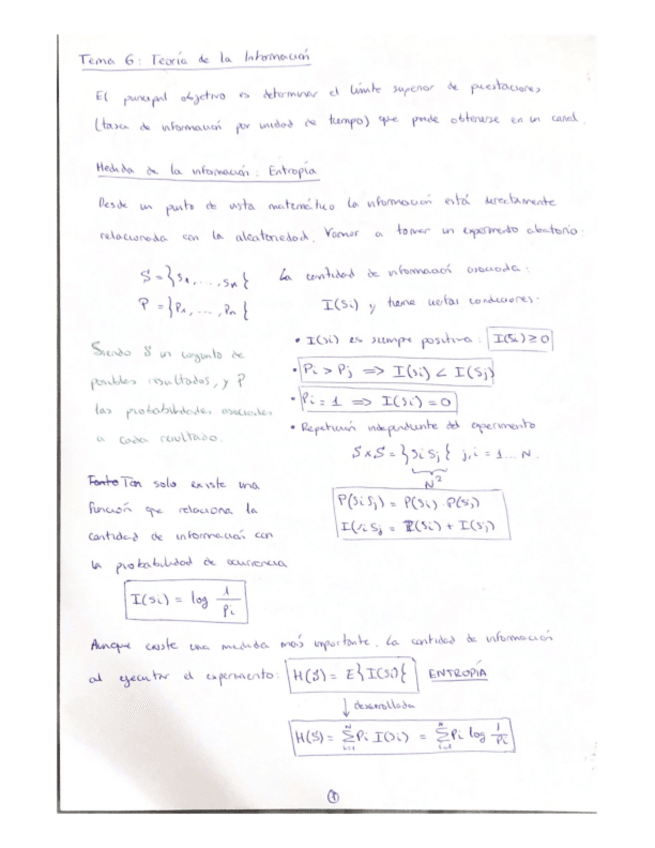 Tema 6: Teoría de la Información
El principal objetivo es determinar el límite superior de prestaciones
(tasa de información por unidad de tiempo) que puede obtenerse en un canal.
Medida de la información: Entropía
Desde un punto de vista matemático la información está directamente
relacionada con la aleatoriedad. Vamos a tomar un experimento aleatorio:
S = {s₁, ..., sₙ}
P = {P₁, ..., Pₙ}
Siendo S un conjunto de
posibles resultados, y P
las probabilidades asociadas
a cada resultado.
La cantidad de información asociada:
I(Si) y tiene ciertas condiciones:
• I(si) es siempre positiva: I(Si) ≥ 0
• Pi > Pj ⟹ I(Si) < I(Sj)
• Pi = 1 ⟹ I(Si) = 0
• Repetición independiente del experimento
S×S = {Si Sj} j,i = 1...N.
N²
P(Si Sj) = P(Si) · P(Sj)
I(Si Sj = I(Si) + I(Sj)
Tan solo existe una
función que relaciona la
cantidad de información con
la probabilidad de ocurrencia
I(Si) = log 1/Pi
Aunque existe una medida más importante. La cantidad de información
al ejecutar el experimento: H(S) = E{I(Si)} ENTROPÍA
↓ desarrollada
H(S) = ∑ᵢ₌₁ᴺ Pi I(Si) = ∑ᵢ₌₁ᴺ Pi log 1/Pi
1